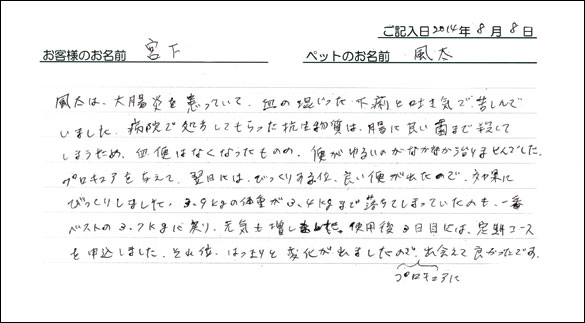 ご記入日2014年8月8日
お客様のお名前 宮下 ペットのお名前 風太
風太は、大腸炎を患っていて、血の混じった下痢と吐き気で苦しんで
いました。病院で処方してもらった抗生物質は、腸に良い菌まで殺して
しまうため、血便はなくなったものの、便がゆるいのがなかなか治りませんでした。
プロキュアを与えて、翌日には、びっくりする位、良い便が出たので、効果に
びっくりしました。3.9kgの体重が3.4kgまで落ちてしまっていたのも、一番
ベストの3.7kgに戻り、元気も増しました。使用後3日目には、定期コース
を申込しました。それ位、はっきりと変化が出ましたので、出会えて良かったです。
プロキュアに